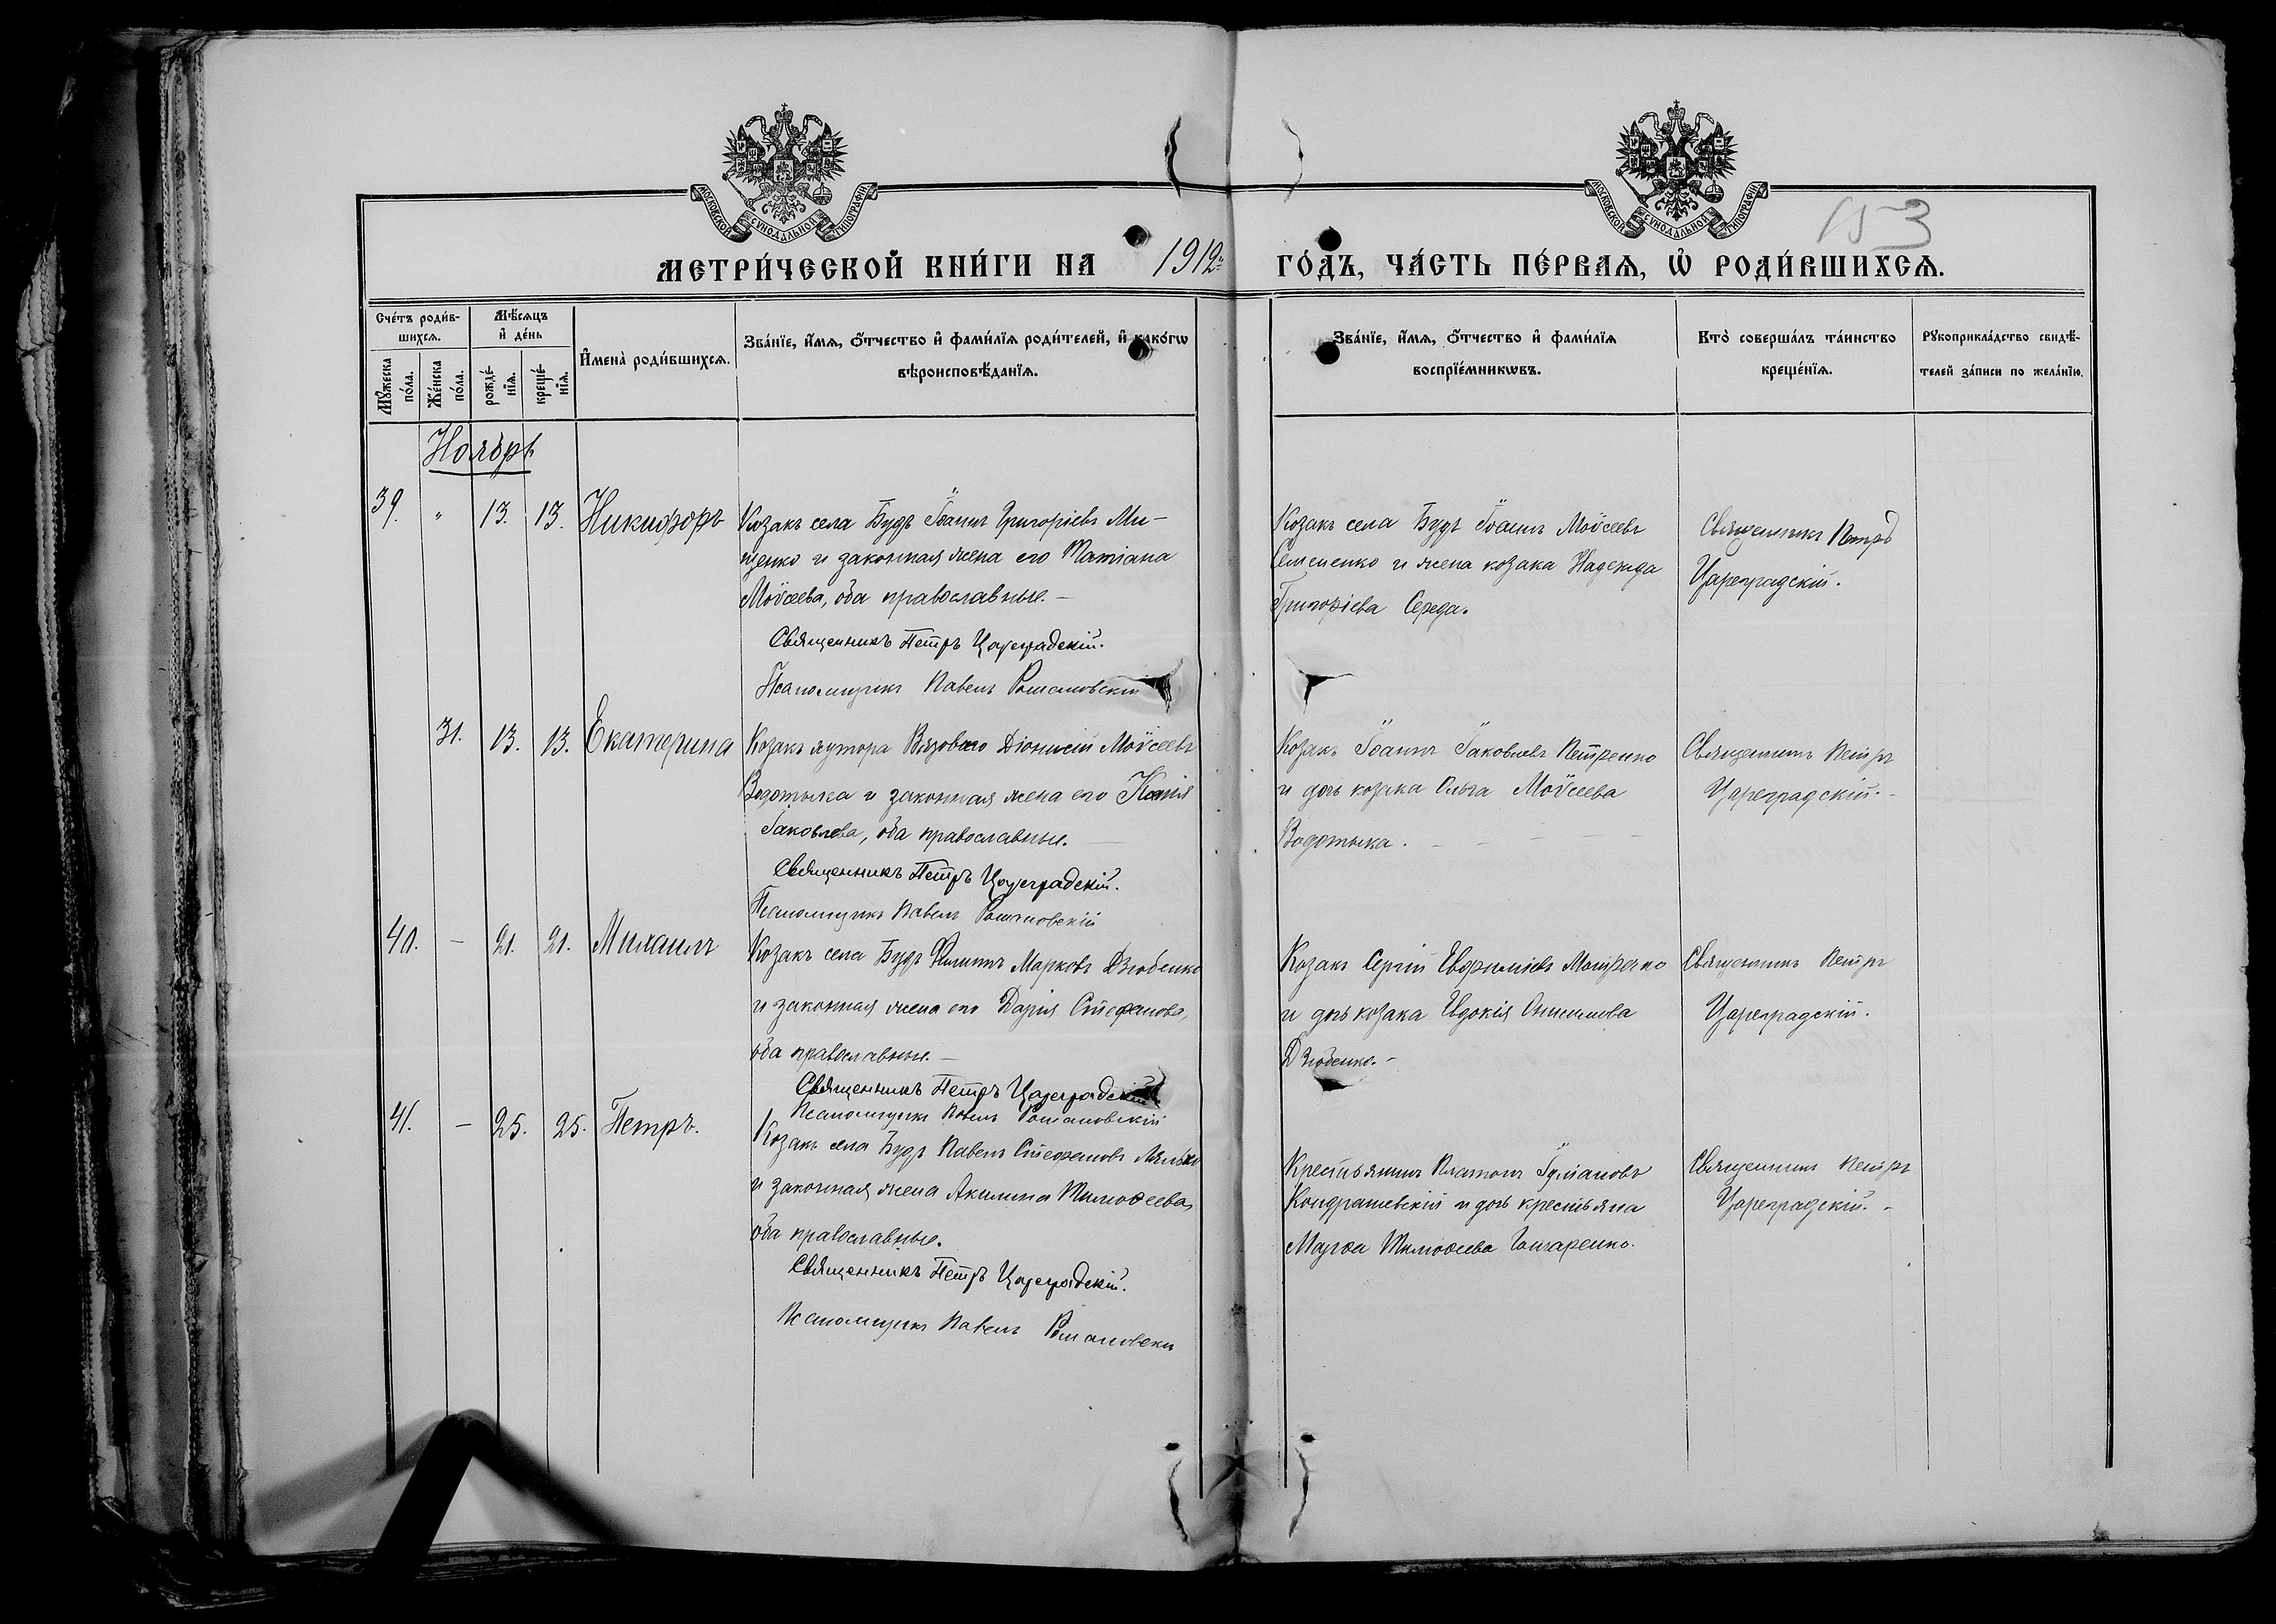 МОСКОВСКОЙ СѴНОДАЛЬНОЙ ТИПОГРАФІИ
МОСКОВСКОЙ СѴНОДАЛЬНОЙ ТИПОГРАФІИ
153
МЕТРИ́ЧЕСКОЙ КНИ́ГИ НА 1912 г. ГО́ДЪ, ЧА́СТЬ ПЕ́РВАѦ, Ѡ РОДИ́ВШИХСѦ.
Сче́тъ роди́в-
шихсѧ.
Мꙋ́жеска по́ла.
Же́нска по́ла.
Мѣ́сѧцъ
и҆ де́нь
рожде́-
нїѧ.
креще́-
нїѧ.
И҆мена̀ роди́вшихсѧ.
Зва́нїе, и҆́мѧ, ѻ҆́тчество и҆ фами́лїѧ роди́телей, и҆ како́гѡ
вѣроисповѣ́данїѧ.
Зва́нїе, и҆́мѧ, ѻ҆́тчество и҆ фами́лїѧ
воспрїе́мникѡвъ.
Кто̀ соверша́лъ та́инство
креще́нїѧ.
Рꙋкоприкла́дство свидѣ́-
телей за́писи по жела́нїю.
Ноябрь
39. " 13. 13. Никифоръ
Козакъ села Будъ Іоаннъ Григоріевъ Ми-
щенко и законная жена его Татіана
Моѵсеева, оба православные. –
Священникъ Петръ Цареградскій.
Псаломщикъ Павелъ Романовскій
Козакъ села Будъ Іоаннъ Моѵсеевъ
и жена козака Надежда
Григоріева Середа.
Священникъ Петръ
Цареградскій.
31. 13. 13. Екатерина
Козакъ хутора Вязоваго Діонисій Моѵсеевъ
Водотыка и законная жена его Ксенія
Іаковлева, оба православные.
Священникъ Петръ Цареградскій.
Псаломщикъ Павелъ Романовскій
Козакъ Іоаннъ Іаковлевъ Петренко
и дочь козака Ольга Моѵсеева
Водотыка. –
Священникъ Петръ
Цареградскій. –
40. – 21. 21. Михаилъ
Козакъ села Будъ Филиппъ Марковъ Дзюбенко
и законная жена его Дарія Стефанова,
оба православные. –
Священникъ Петръ Цареградскій.
Псаломщикъ Павелъ Романовскій
Козакъ Сергій Евфиміевъ
и дочь козака Евдокія Онисимова
Дзюбенко. –
Священникъ Петръ
Цареградскій.
41. – 25. 25. Петръ.
Козакъ села Будъ Павелъ Стефановъ
и законная жена Акилина Тимоѳеева,
оба православные.
Священникъ Петръ Цареградскій.
Псаломщикъ Павелъ Романовскій
Крестьянинъ Платонъ
Кондрашевскій и дочь крестьяна
Марѳа Тимоѳеева Гончаренко.
Священникъ Петръ
Цареградскій. –